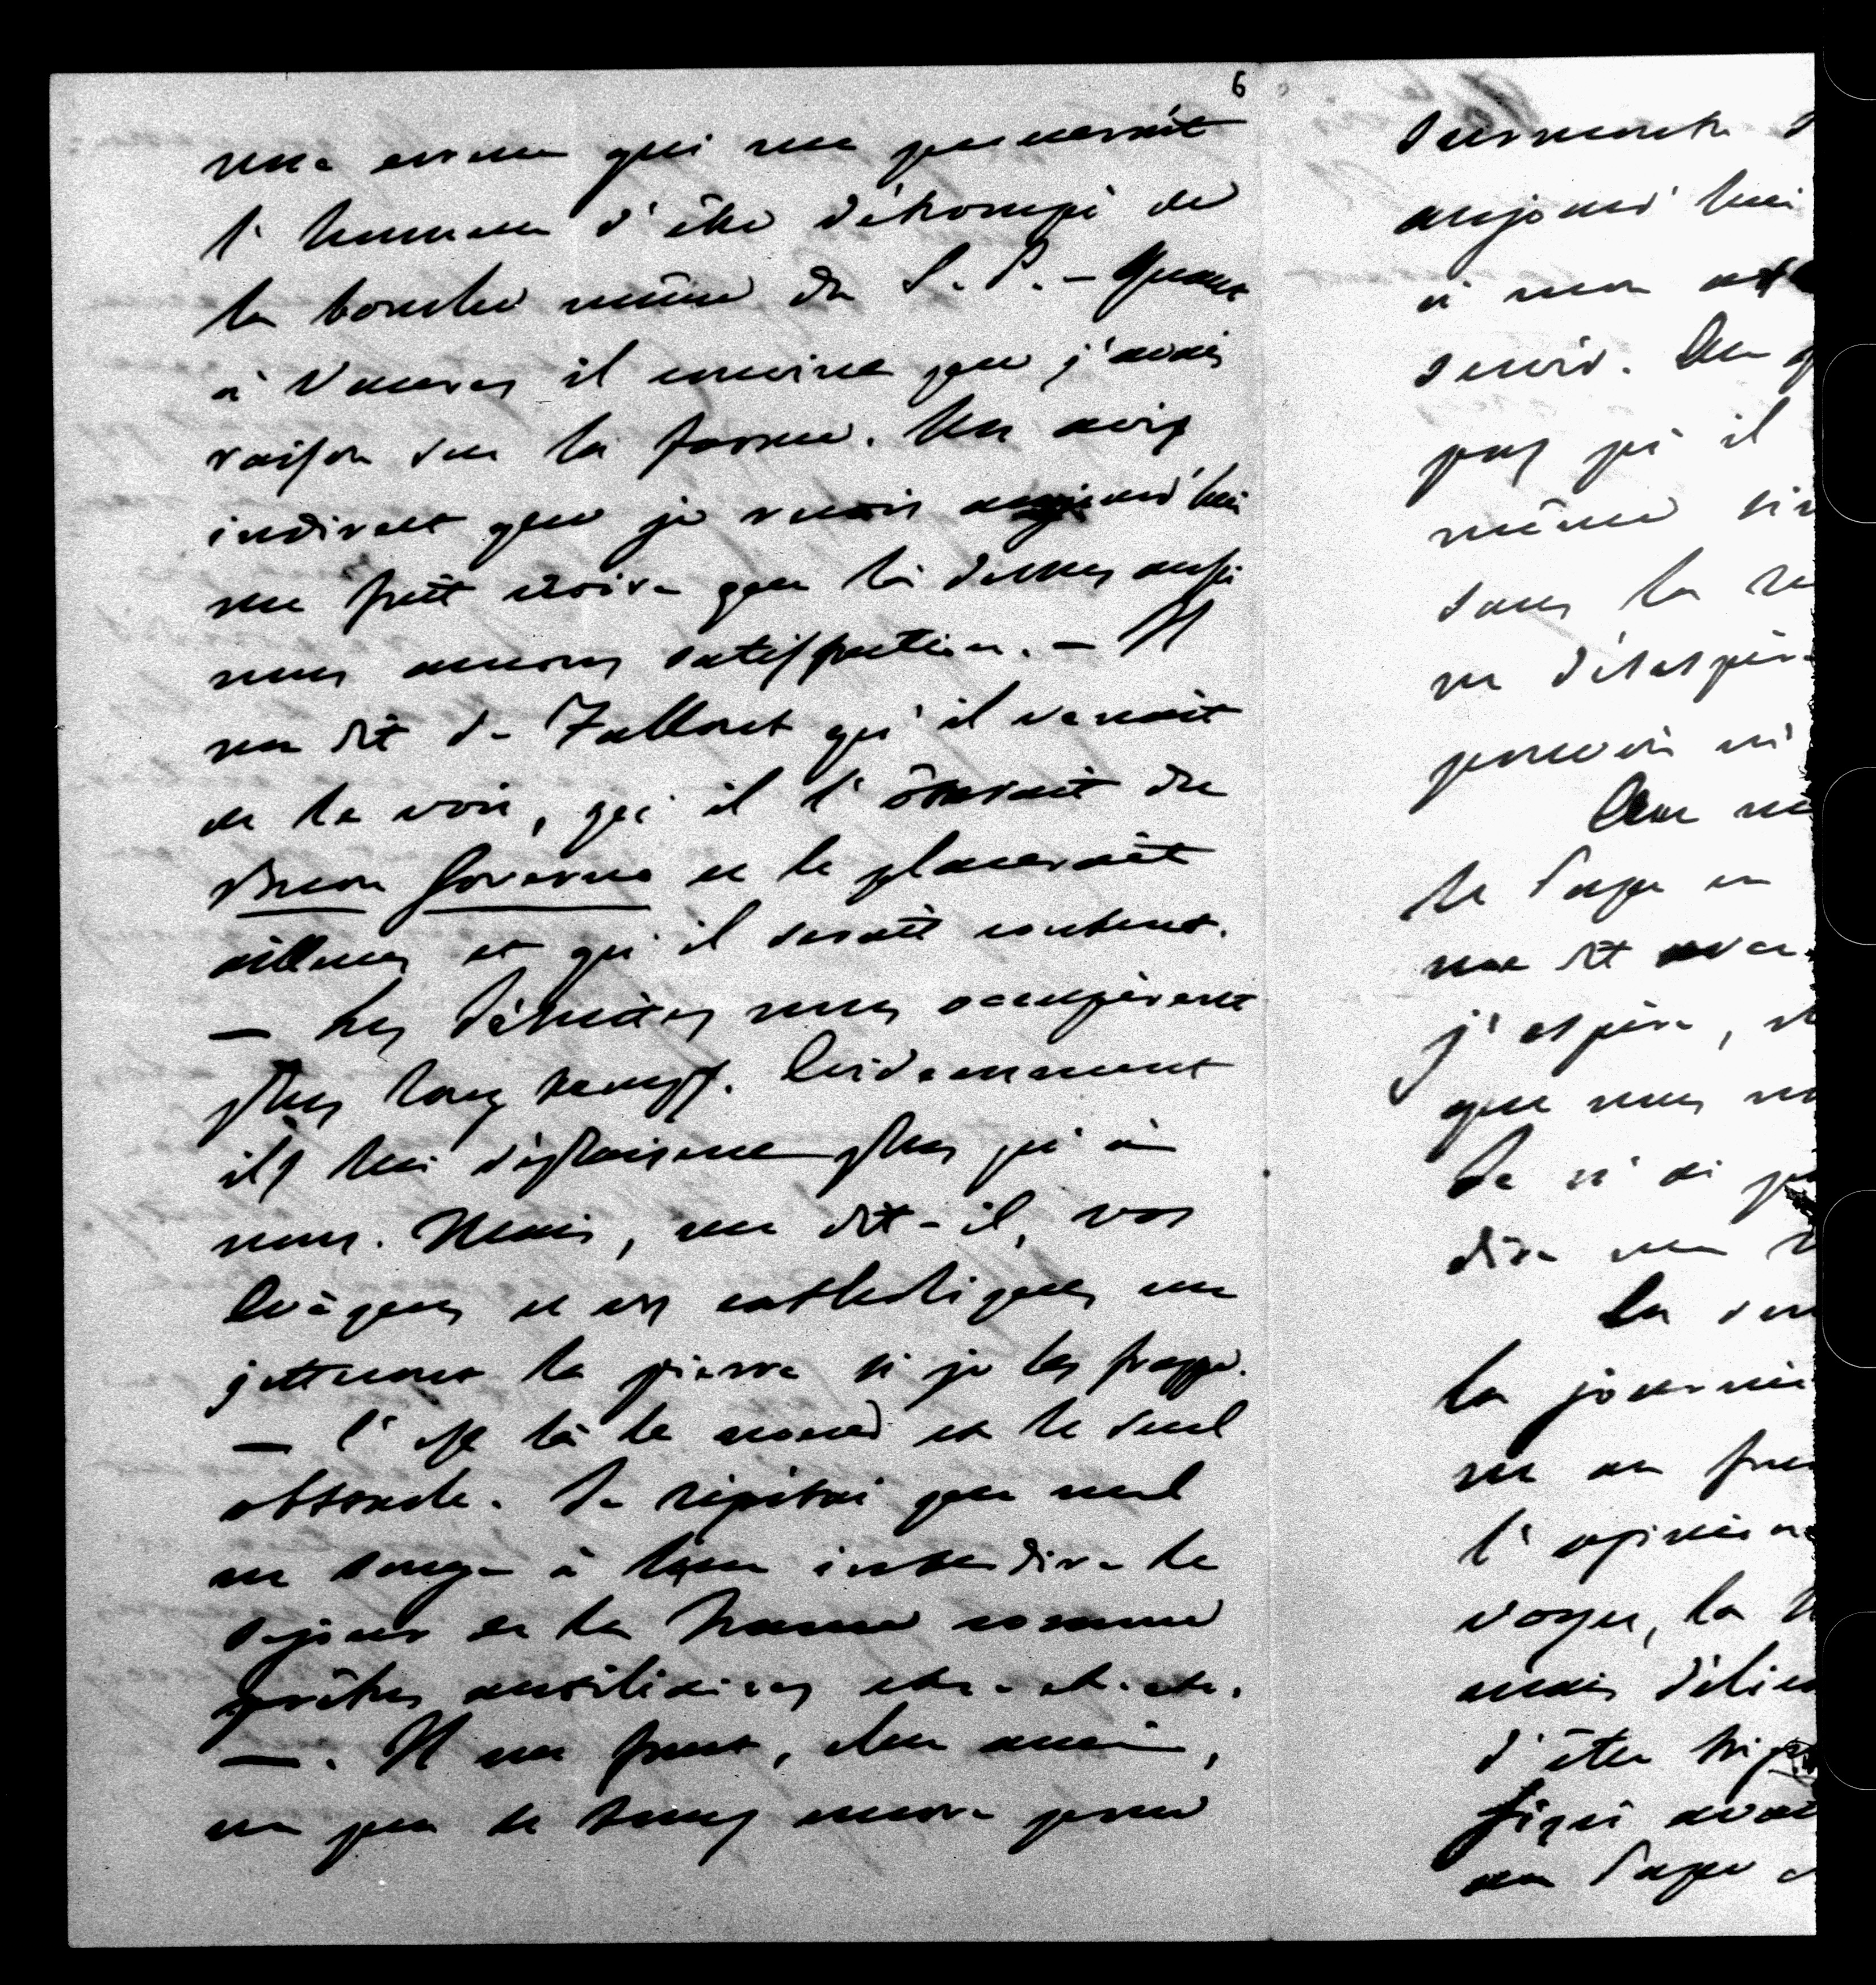 6
une erreur qui me procurerait
l'honneur d'être détrompé de
la bouche même du S. P. – Quant
à Vannes il convint que j'avais
raison sur la forme. Un avis
indirect que je reçois aujourd'hui
me fait croire que là dessus aussi
nous aurons satisfaction. – Il
me dit de qu'il venait
de le voir, qu'il l'ôterait du
Buon Governo et le placerait
ailleurs et qu'il serait content.
– Les Jésuites nous occupèrent
plus long temps. Evidemment
ils lui déplaisent plus qu'à
nous. Mais, me dit-il, vos
Evêques et vos catholiques me
jetteront la pierre si je les frappe.
– C'est là le nœud et le seul
obstacle. Je répétai que nul
ne songe à leur interdire le
séjour de la France comme
prêtres auxiliaires etc. etc. etc.
–. Il me faut, cher ami,
un peu de temps encore pour
surmonter
aujourd'hui
à mon
servir. On
pas qu'il
même
sans la
ne
pouvoir ni
le Pape
me dit avec
j'espère,
que nous
Je n'ai
dire
La
la journée
ne
l'opinion
voyez, la
mais
d'être
au Pape